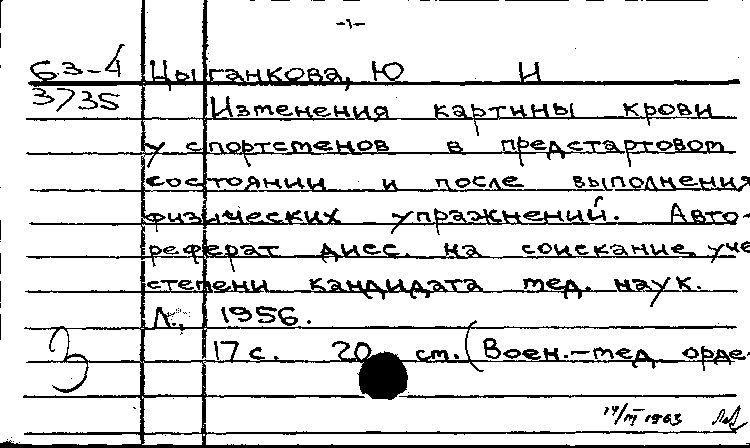 -1-
63-4 Цыганкова, Ю И
3735 Изменения картины крови
у спортсменов в предстартовом
состоянии и после выполнения
физических упражнений. Авто-
реферат дисс. на соискание уче
степени кандидата мед. наук.
Л., 1956.
17 с. 20 см. (Воен.-мед. орде-
3
14/III 1963